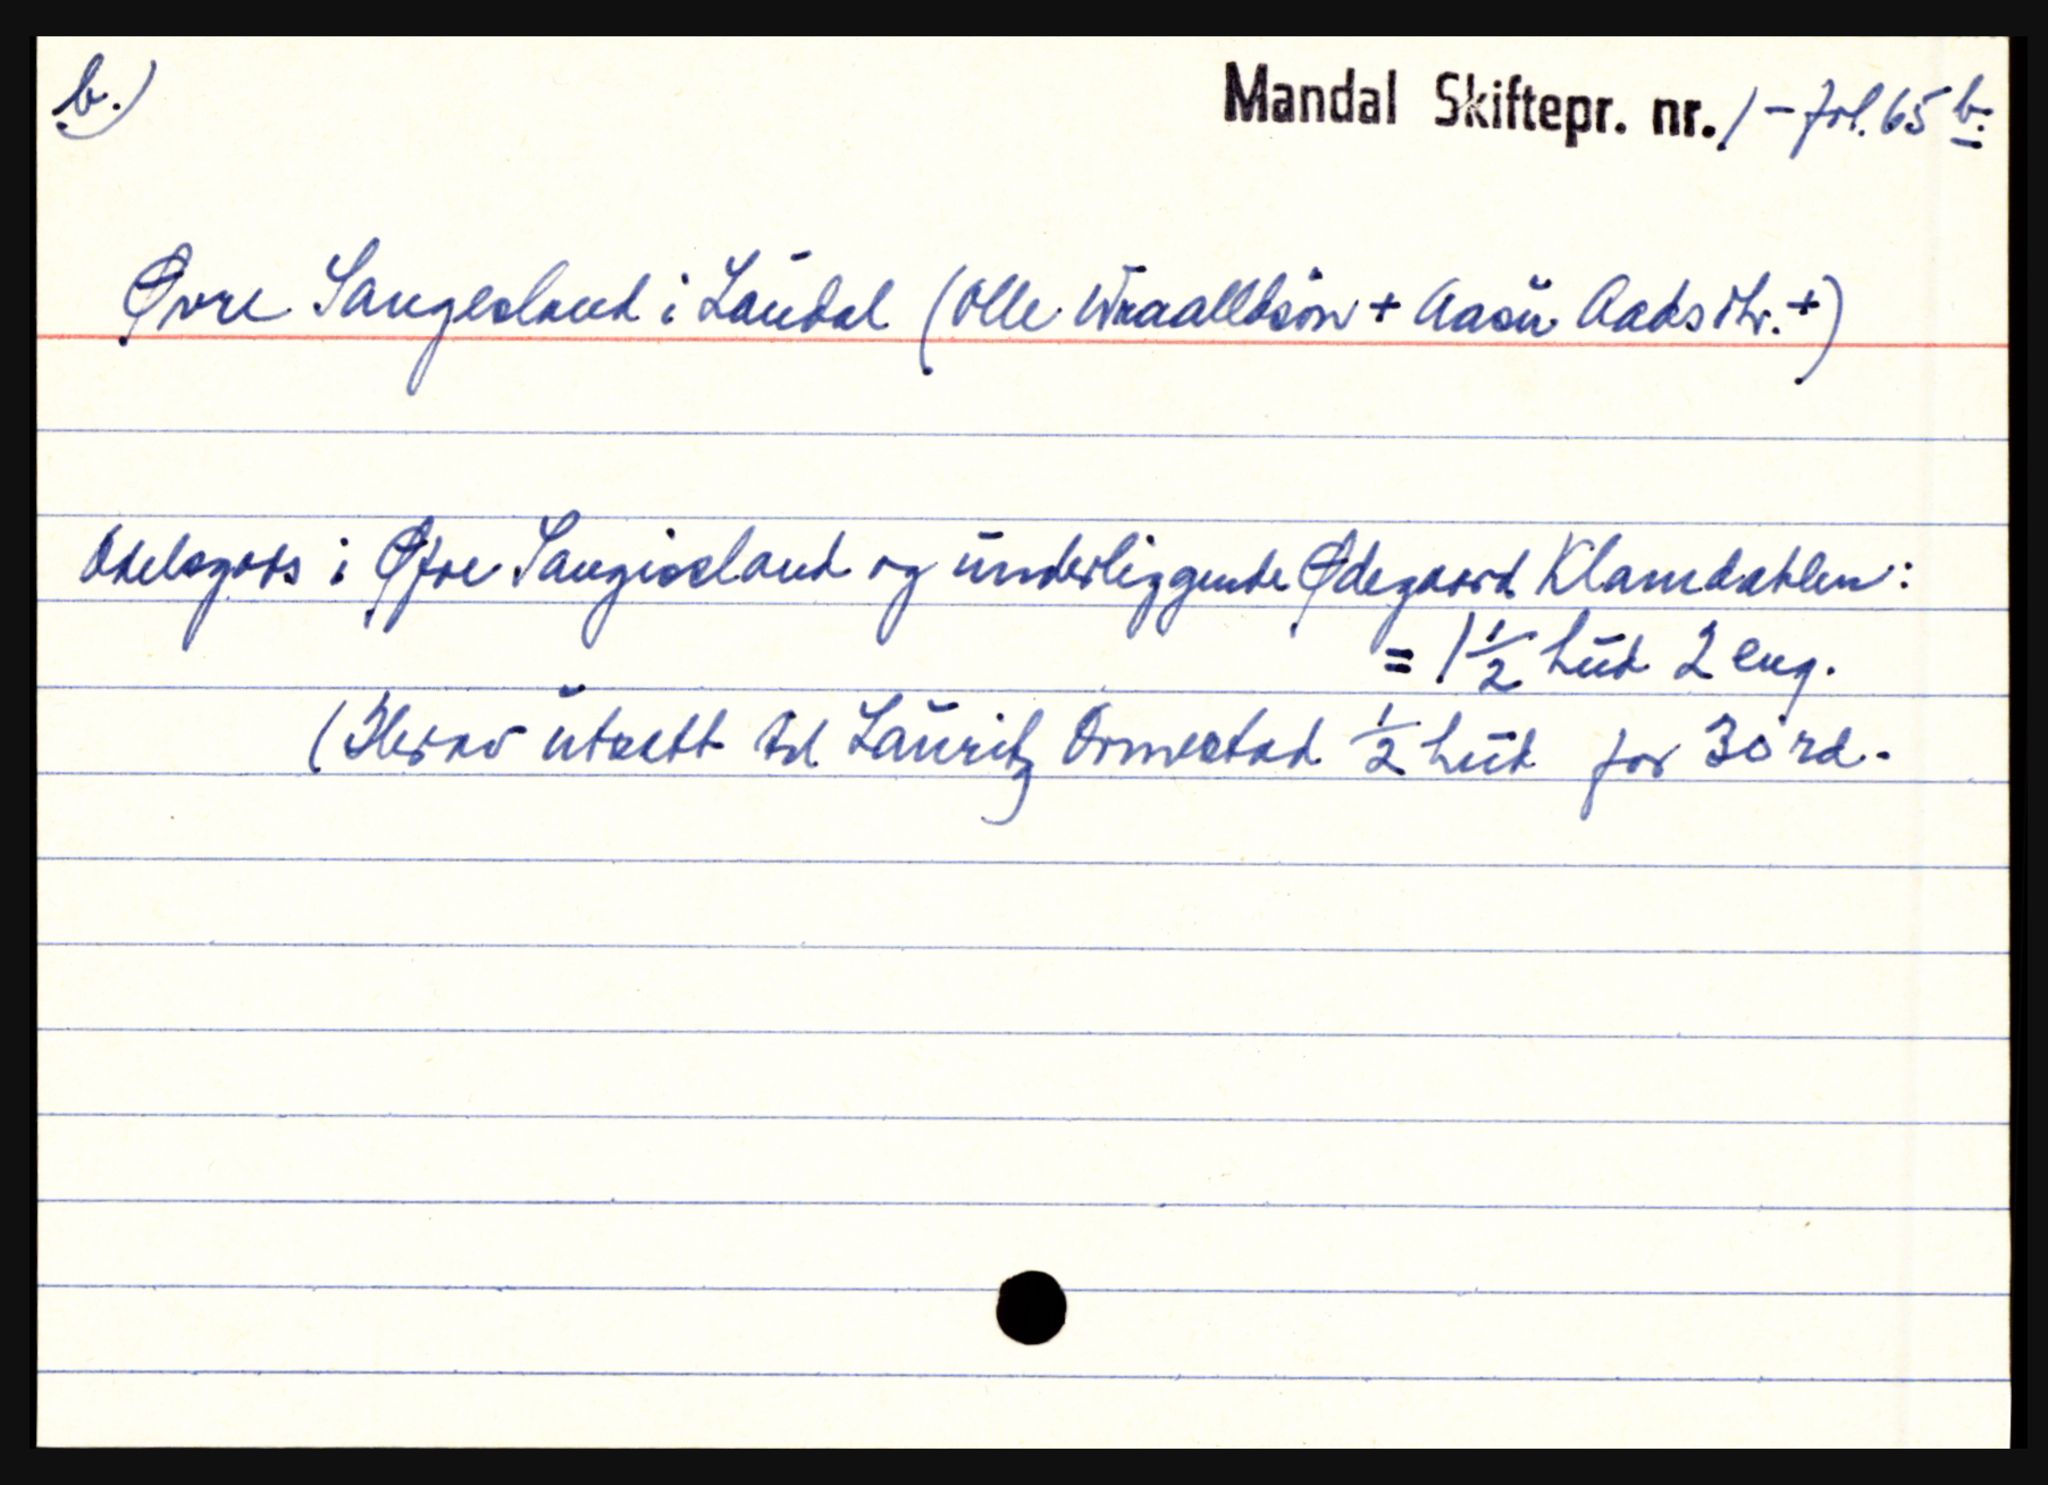 b.) Mandal Skiftepr. nr. 1 - fol. 65 b.
Øvre Saugesland i Laudal (Olle Wraalldsøn + Aasu Aadsdtr. +)
Odelsgods i Øfre Saugiesland og underliggende Ødegaard Klamdahlen:
= 1 1/2 hud 2 eng.
(Herav utsatt til Lauritz Ormestad 1/2 hud for 30 rd.